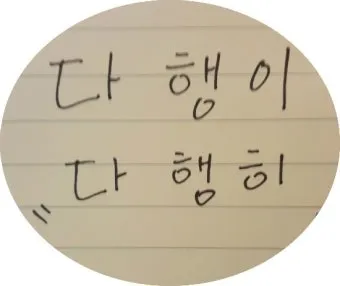 다행이
"다행히